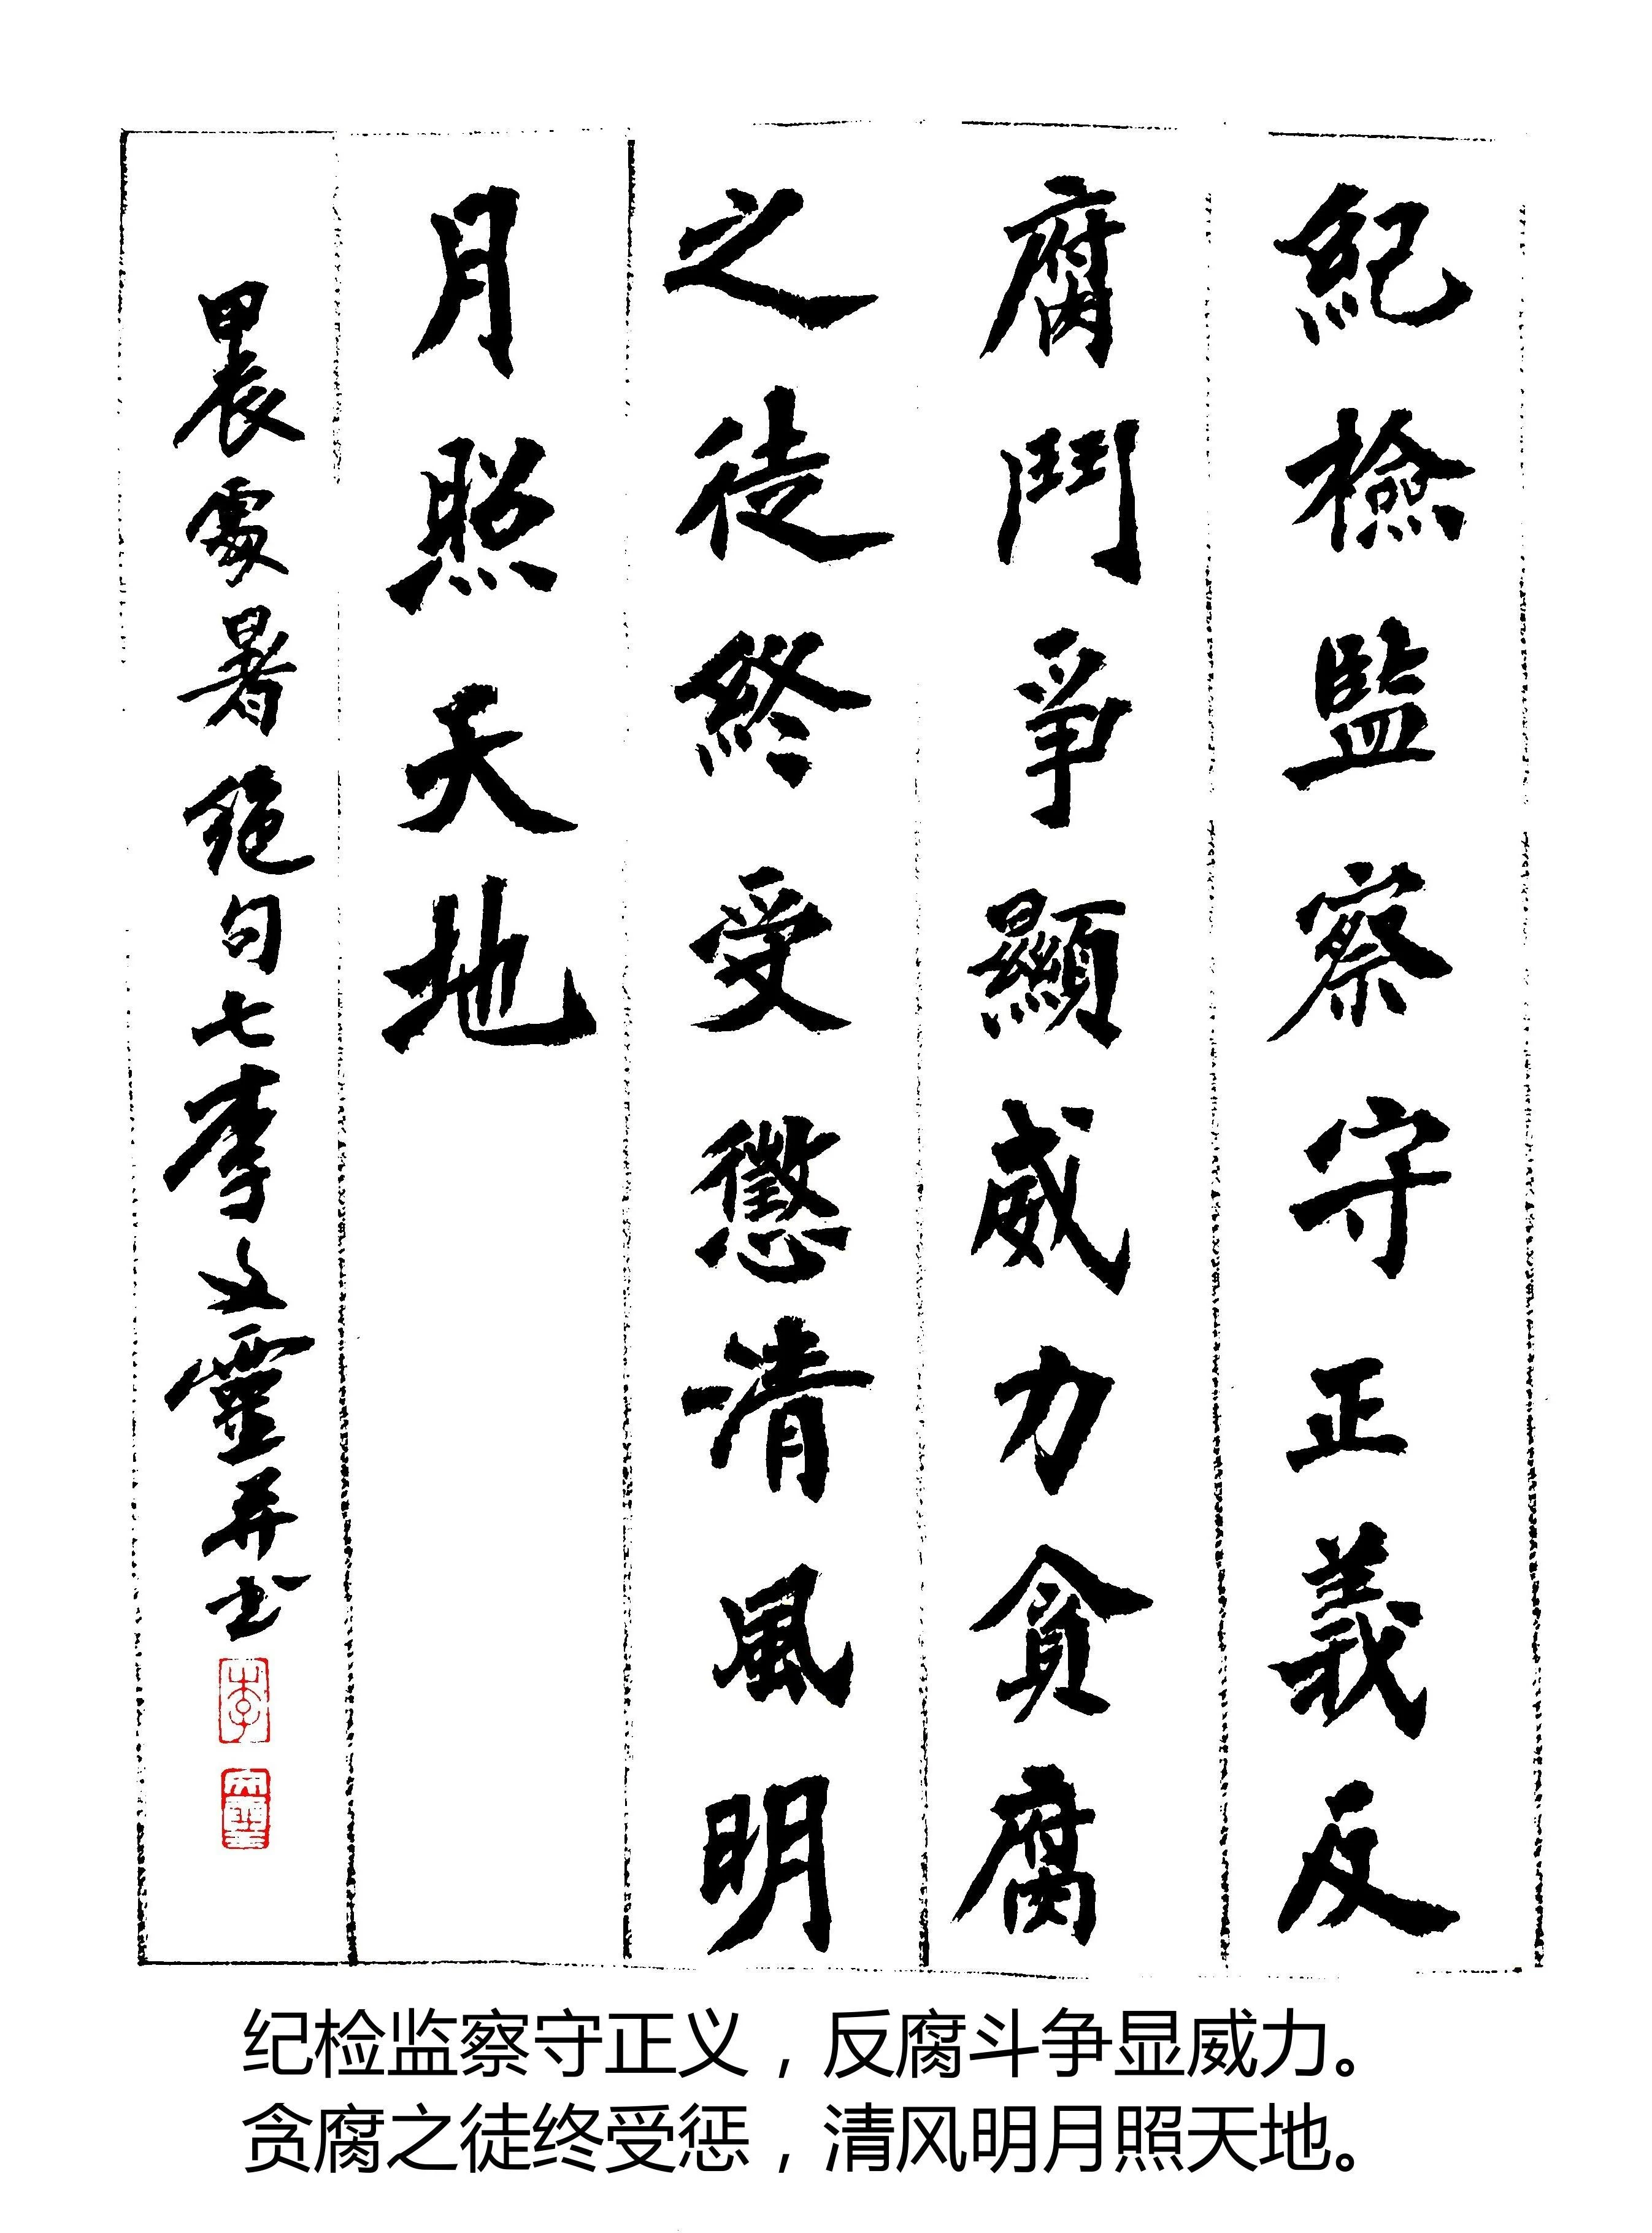 紀檢監察守正義反
腐鬥爭顯威力貪腐
之徒終受懲清風明
月照天地
甲辰處暑絕句七李文靈并书
李
文靈
纪检监察守正义，反腐斗争显威力。
贪腐之徒终受惩，清风明月照天地。